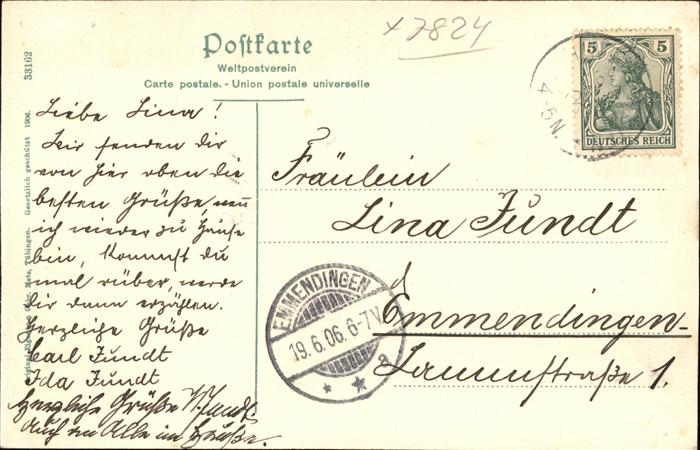 Postkarte
Weltpostverein
Carte postale. - Union postale universelle
x 7824
33162
Gesetzlich geschützt 1906.
Metz, Tübingen.
5 5
DEUTSCHES REICH
4-5N.
Liebe Lina!
Wir senden dir
von hier oben die
besten Grüße, wenn
ich wieder zu Hause
bin, kommst du
mal rüber, werde
dir dann erzählen.
Herzliche Grüße
Carl Fundt
Ida Fundt
Herzliche Grüße W. Fundt.
Auch an Alle im Hause.
Fräulein
Lina Fundt
Emmendingen
Lammstraße 1.
EMMENDINGEN
19.6.06. 6-7V
a